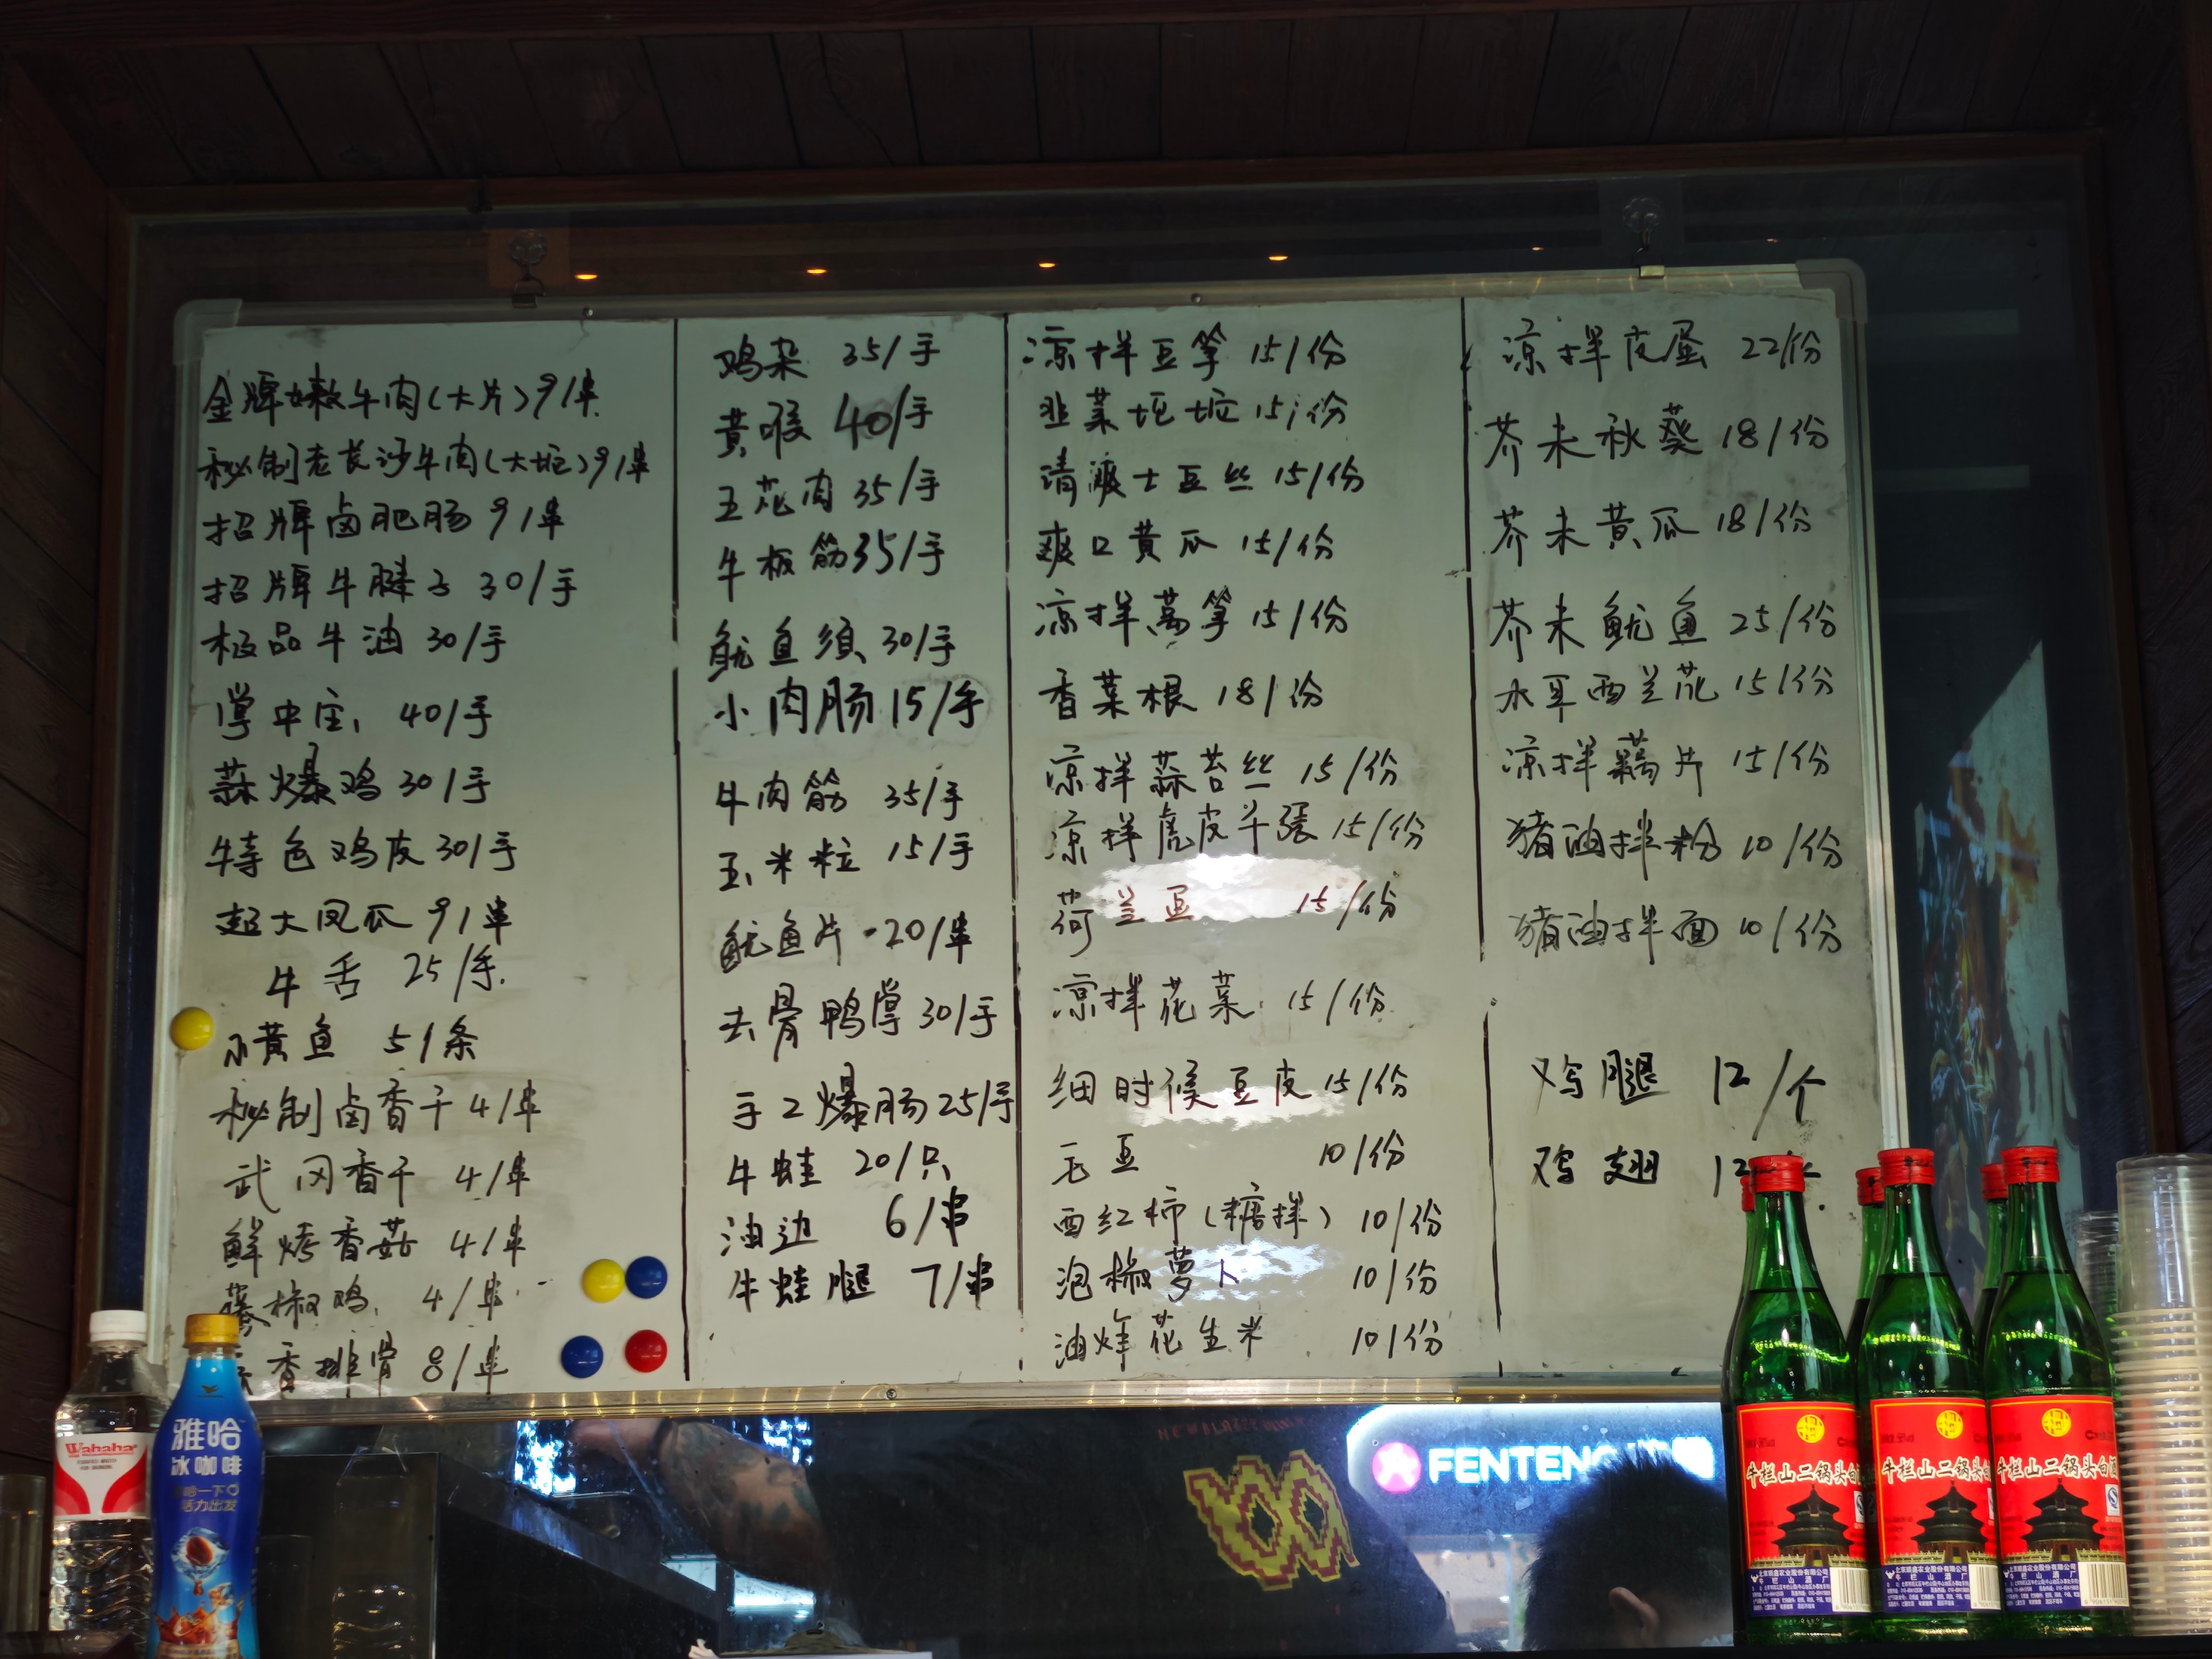 金牌嫩牛肉(大片)9/串
秘制老长沙牛肉(大坨)9/串
招牌卤肥肠 9/串
招牌牛腱子 30/手
极品牛油 30/手
掌中宝 40/手
蒜爆鸡 30/手
特色鸡皮 30/手
超大凤爪 9/串
牛舌 25/手
小黄鱼 5/条
秘制卤香干 4/串
武冈香干 4/串
鲜烤香菇 4/串
藤椒鸡 4/串
香排骨 8/串
鸡杂 35/手
黄喉 40/手
五花肉 35/手
牛板筋 35/手
鱿鱼须 30/手
小肉肠 15/手
牛肉筋 35/手
玉米粒 15/手
鱿鱼片 20/串
去骨鸭掌 30/手
手工爆肠 25/手
牛蛙 20/只
油边 6/串
牛蛙腿 7/串
凉拌豆笋 15/份
韭菜坨坨 15/份
清爽土豆丝 15/份
爽口黄瓜 15/份
凉拌莴笋 15/份
香菜根 18/份
凉拌蒜苔丝 15/份
凉拌虎皮千張 15/份
荷兰豆 15/份
凉拌花菜 15/份
细时候豆皮 15/份
毛豆 10/份
西红柿(糖拌) 10/份
泡椒萝卜 10/份
油炸花生米 10/份
凉拌皮蛋 22/份
芥末秋葵 18/份
芥末黄瓜 18/份
芥末鱿鱼 25/份
木耳西兰花 15/份
凉拌藕片 15/份
猪油拌粉 10/份
猪油拌面 10/份
鸡腿 12/个
鸡翅 12
Wahaha
雅哈
冰咖啡
哈一下
活力出发
FENTENG
牛栏山二锅头白
牛栏山二锅头白
牛栏山二锅头白酒